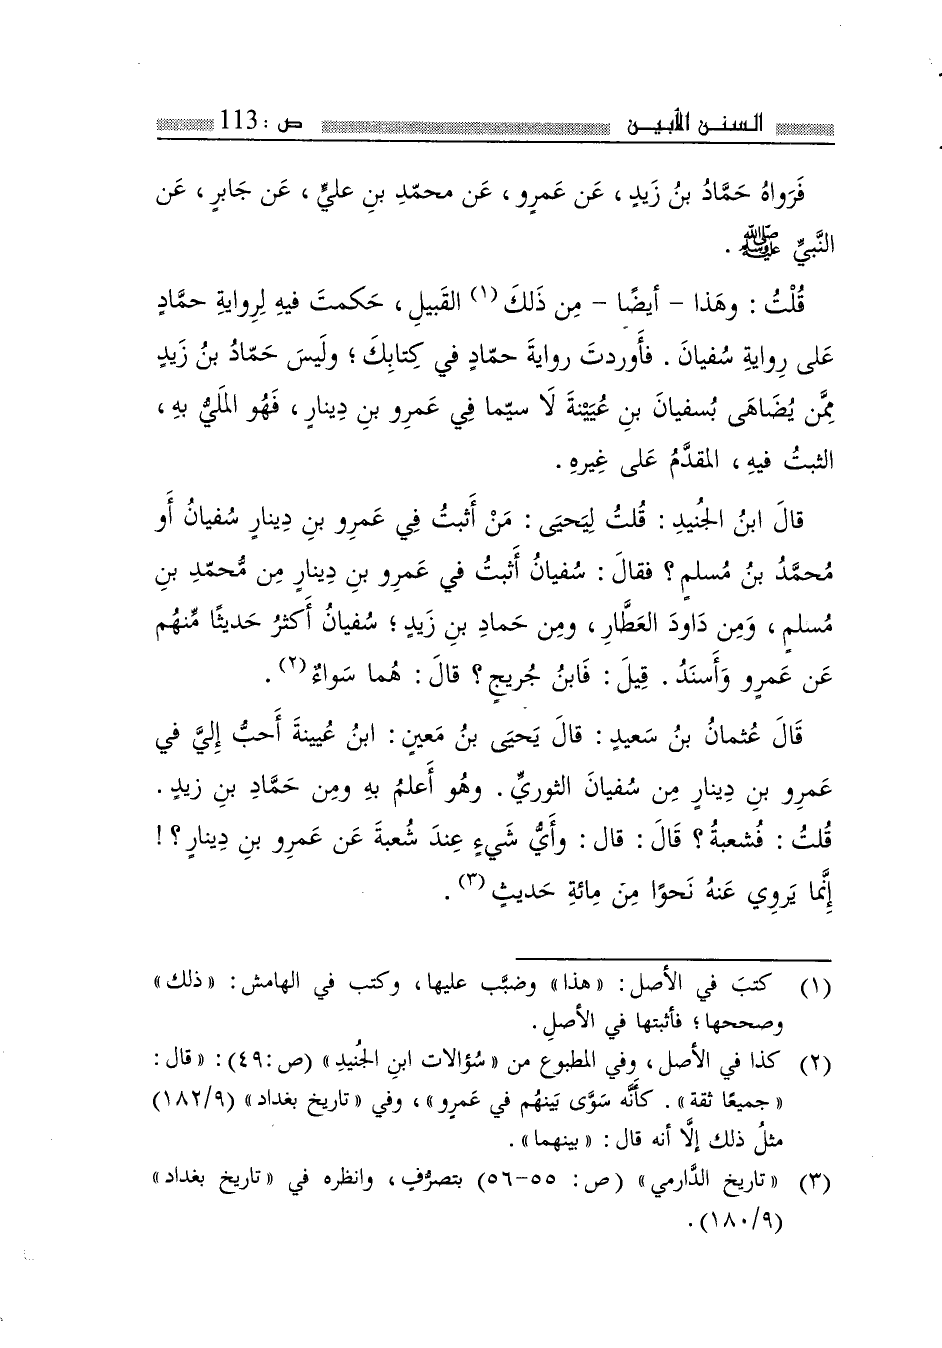 السنن الأبين ص : 113
فَرَواهُ حَمَّادُ بنُ زَيدٍ ، عَن عَمرٍو ، عَن محمّدِ بنِ عليٍّ ، عَن جَابرٍ ، عَن
النَّبيِّ ﷺ .
قُلْتُ : وهَذا – أيضًا – مِن ذَلكَ (١) القَبيلِ ، حَكمتَ فيهِ لِروايةِ حمَّادٍ
عَلى رِوايةِ سُفيانَ . فأَوردتَ روايةَ حمّادٍ في كِتابِكَ ؛ ولَيسَ حَمّادُ بنُ زَيدٍ
مِمَّن يُضَاهَى بُسفيانَ بنِ عُيَيْنةَ لَا سيّما فِي عَمرِو بنِ دِينارٍ ، فَهُو المَليُّ بهِ ،
الثبتُ فيهِ ، المقدَّمُ عَلى غِيرهِ .
قالَ ابنُ الجُنيدِ : قُلتُ لِيَحيَى : مَنْ أَثبتُ فِي عَمرِو بنِ دِينارٍ سُفيانُ أَو
مُحمَّدُ بنُ مُسلمٍ ؟ فقالَ : سُفيانُ أَثبتُ في عَمرِو بنِ دِينارٍ مِن مُّحمّدِ بنِ
مُسلمٍ ، وَمِن دَاودَ العَطَّارِ ، ومِن حَمادِ بنِ زَيدٍ ؛ سُفيانُ أَكثرُ حَديثًا مِّنهُم
عَن عَمرٍو وَأَسنَدُ . قِيلَ : فَابنُ جُريجٍ ؟ قالَ : هُما سَواءٌ (٢) .
قَالَ عُثمانُ بنُ سَعيدٍ : قالَ يَحيَى بنُ مَعينٍ : ابنُ عُيينةَ أَحبُّ إِليَّ في
عَمرِو بنِ دِينارٍ مِن سُفيانَ الثوريِّ . وهُو أَعلمُ بهِ ومِن حَمَّادِ بنِ زيدٍ .
قُلتُ : فُشعبةُ ؟ قَالَ : قال : وأَيُّ شَيءٍ عِندَ شُعبةَ عَن عَمرِو بنِ دِينارٍ ؟ !
إِنَّما يَروِي عَنهُ نَحوًا مِنَ مِائةِ حَديثٍ (٣) .
(١) كتبَ في الأصل : «هذا» وضبَّب عليها ، وكتب في الهامش : «ذلك»
وصححها ؛ فأثبتها في الأصلِ .
(٢) كذا في الأصل ، وفي المطبوع من «سُؤالات ابنِ الجُنيدِ» (ص :٤٩) : «قال :
«جميعًا ثقة» . كأنَّه سَوَّى بَينهُم في عَمرٍو» ، وفي «تاريخ بغداد» (١٨٢/٩)
مثلُ ذلك إلَّا أنه قال : «بينهما» .
(٣) «تاريخ الدَّارمي» (ص : ٥٥-٥٦) بتصرُّفٍ ، وانظره في «تاريخ بغداد»
(١٨٠/٩) .